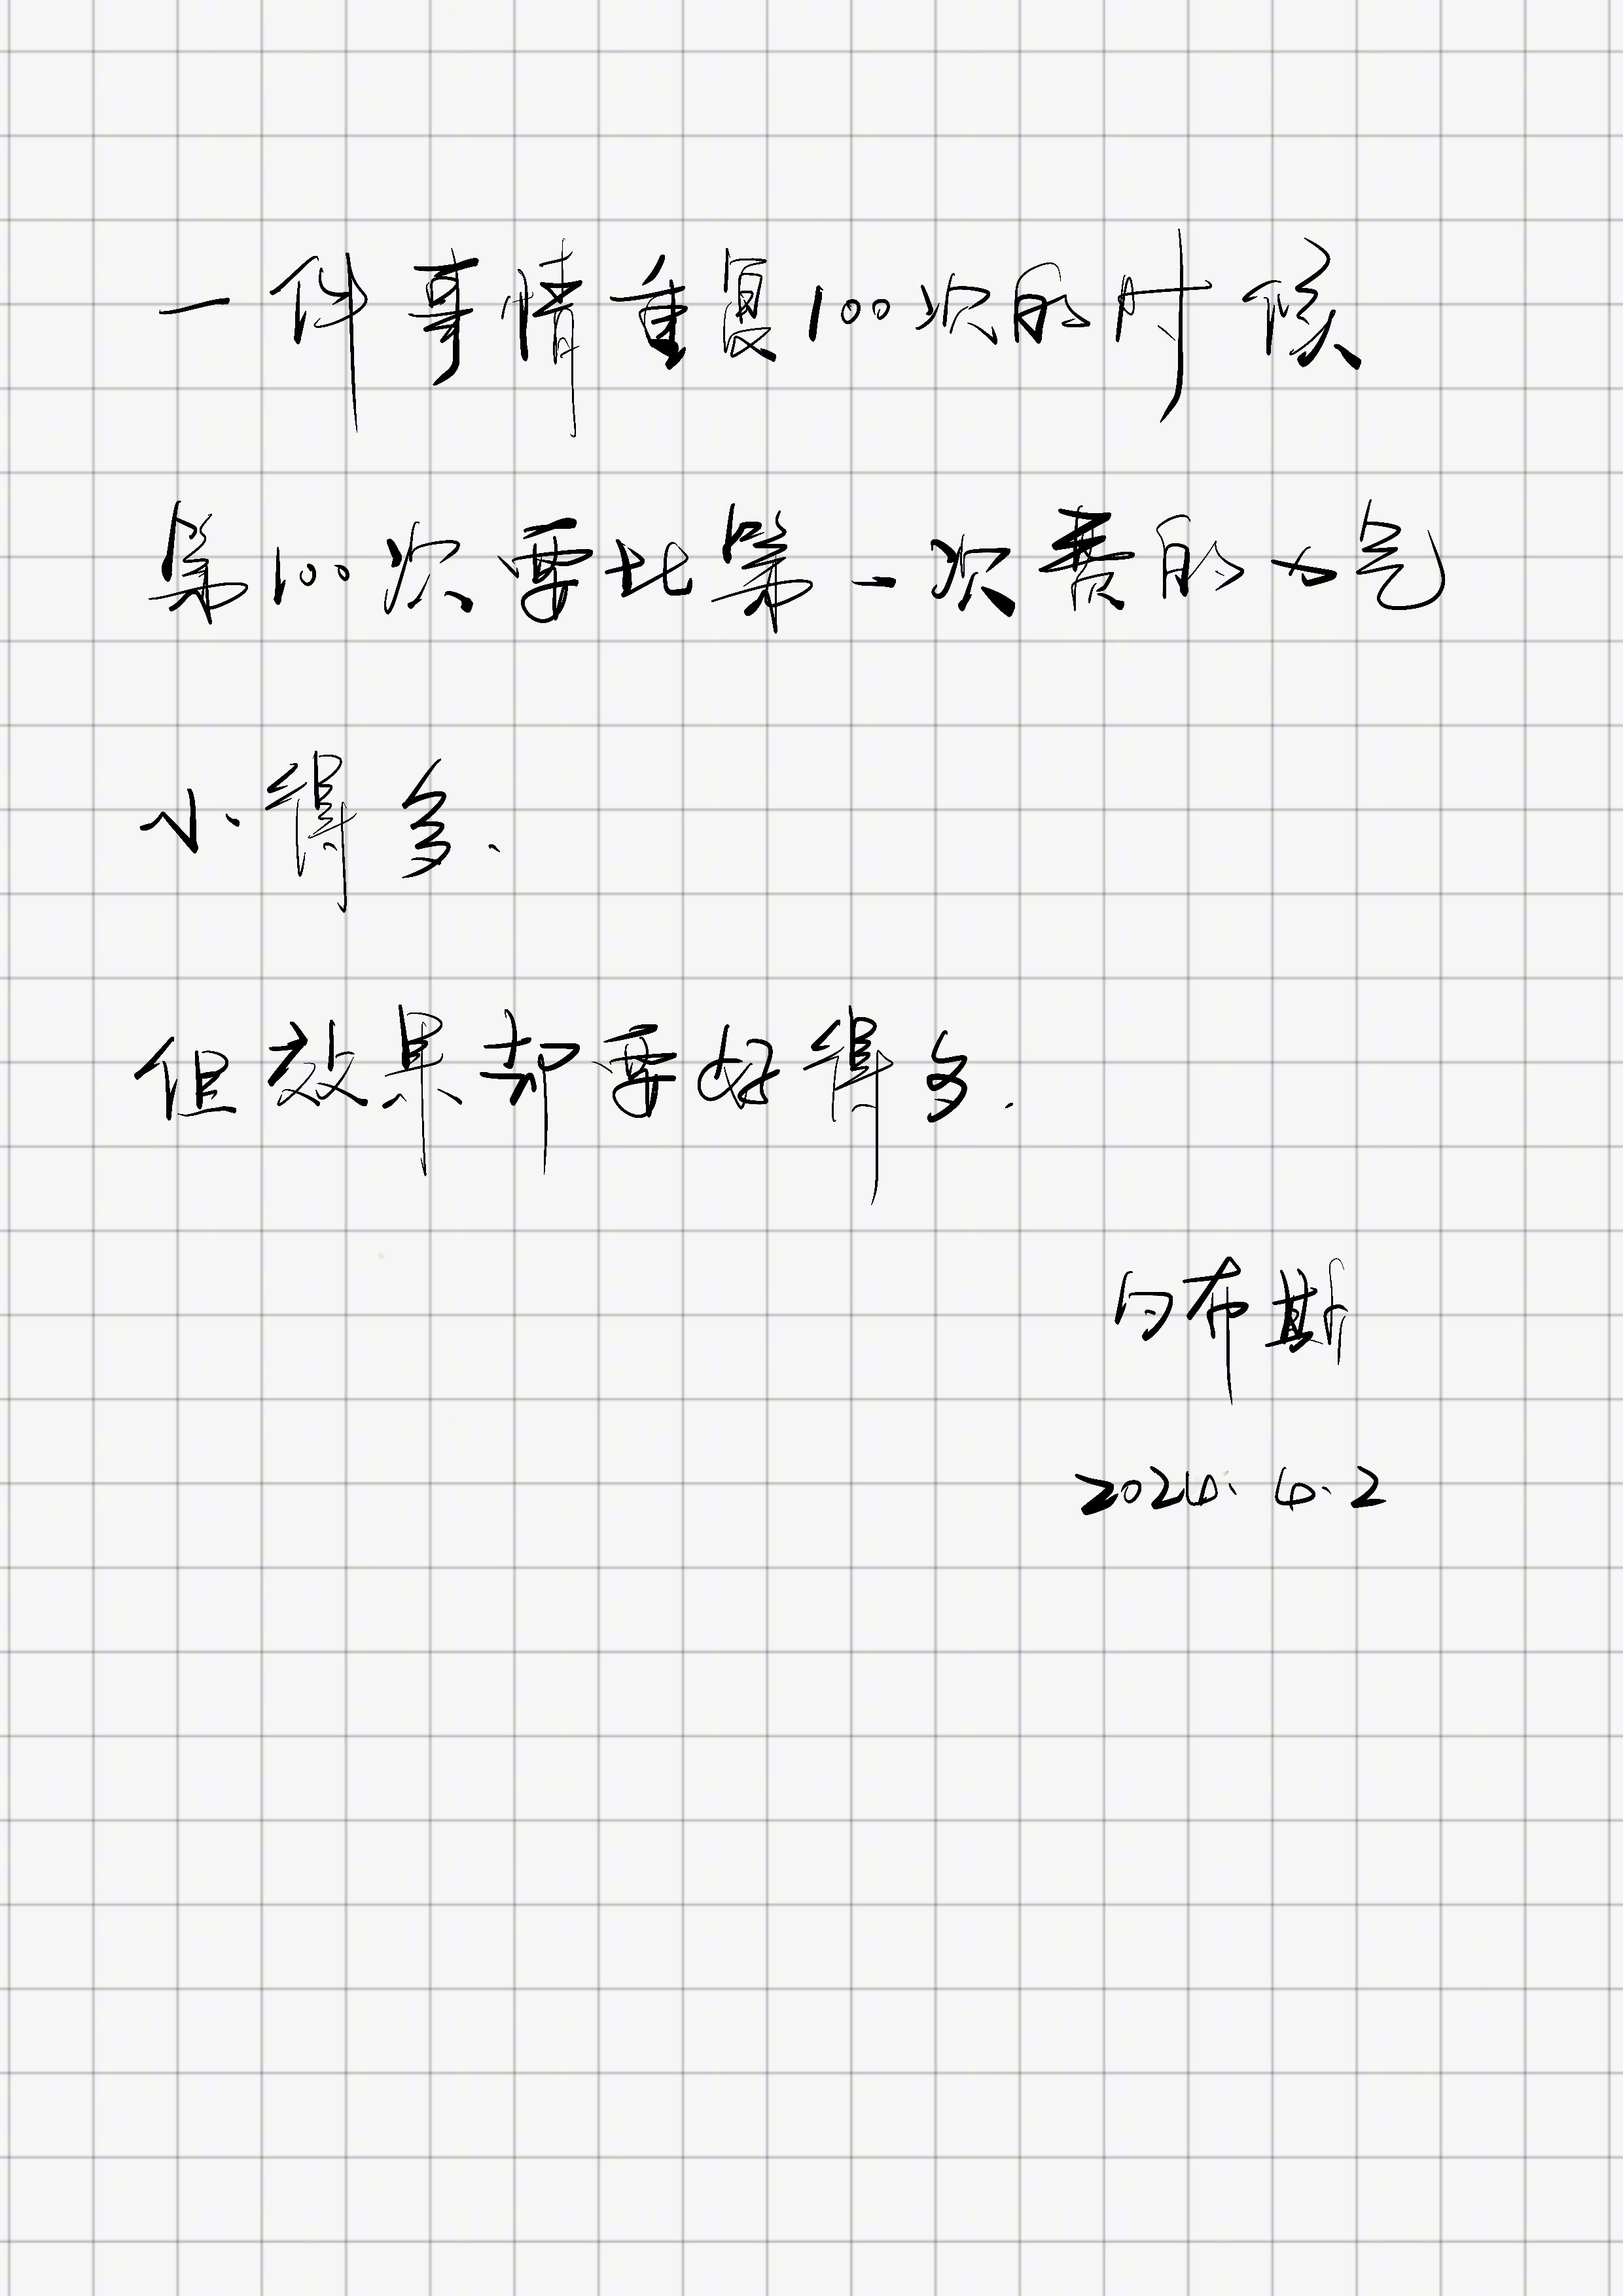 一件事情重复100次的时候
第100次要比第一次费的力气
小得多.
但效果却要好得多.
白布斯
2024.4.2